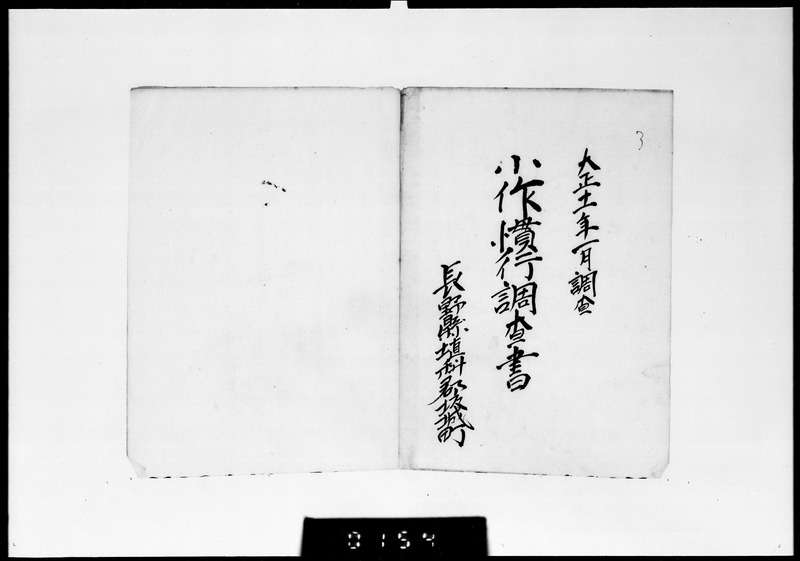 3
大正十一年一月調査
小作慣行調査書
長野縣埴科郡坂城町
0154